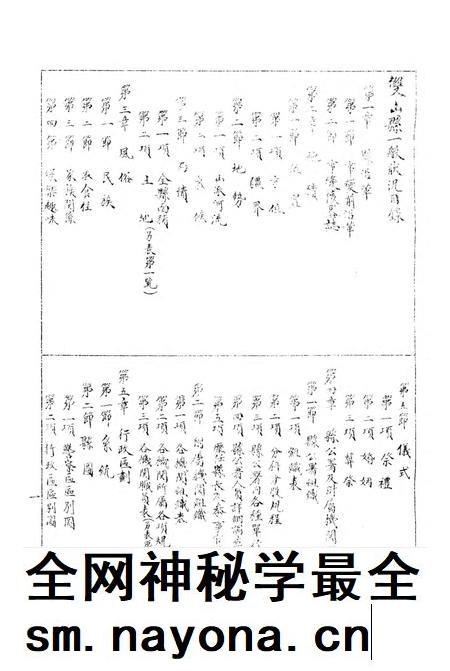 雙山縣一般狀況目錄
第一章 縣沿革
第一節 變前沿革
第二節
第二章 地
第一節
第一項 方位
第二項 疆界
第二節 地勢
第一項 山脈河流
第二項 氣候
第三節
第一項 全縣面積
第二項 土地(另表第一覽)
第三章 風俗
第一節 民族
第二節 衣食住
第三節 家族關係
第四節 娛樂趣味
第五節 儀式
第一項 祭禮
第二項 婚姻
第三項 葬祭
第四章 縣公署及附屬機關
第一節 縣公署組織
第一項 組織表
第二項 分科分股規程
第三項 縣公署內各種
第四項 縣公署人員詳細
第五項 歷任縣長及參事
第二節 附屬機關組織
第一項 各機關組織表
第二項 各機關所屬各項規
第三項 各機關職員表(另表
第五章 行政區劃
第一節 系統
第二節 縣圖
第一項 警察區區別圖
第二項 行政區區別圖
全网神秘学最全
sm.nayona.cn